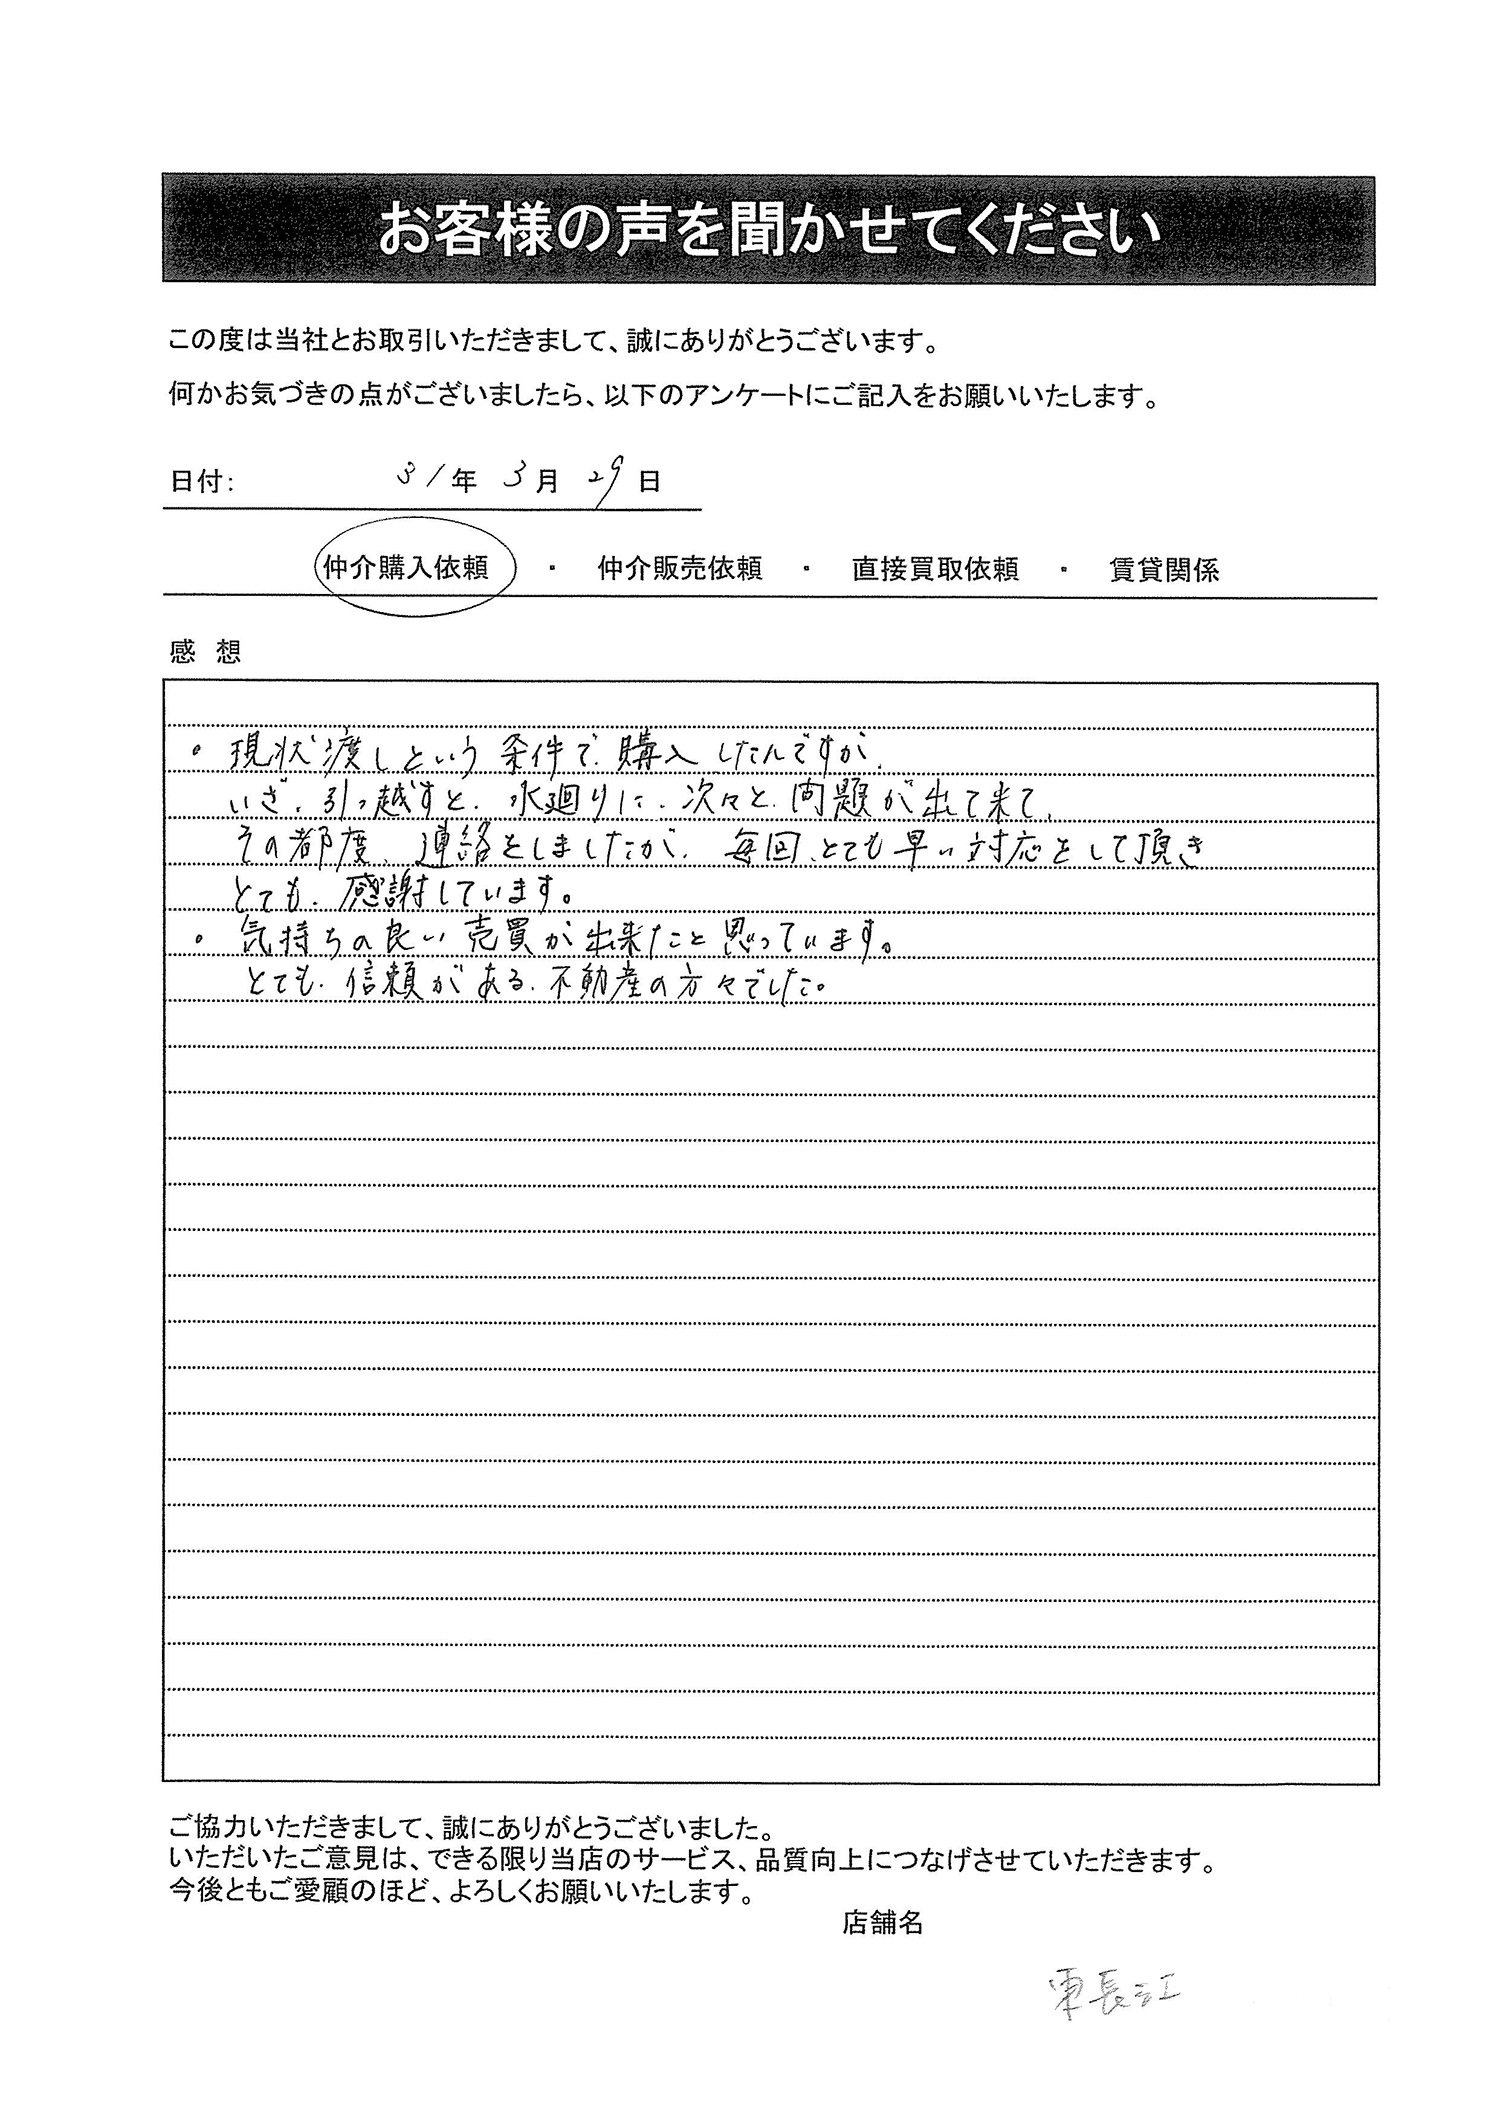 お客様の声を聞かせてください
この度は当社とお取引いただきまして、誠にありがとうございます。
何かお気づきの点がございましたら、以下のアンケートにご記入をお願いいたします。
日付: 31年 3月 29日
仲介購入依頼 ・ 仲介販売依頼 ・ 直接買取依頼 ・ 賃貸関係
感 想
。現状渡しという条件で、購入したんですが、
いざ、引っ越すと、水廻りに、次々と、問題が出て来て、
その都度、連絡をしましたが、毎回、とても早い対応をして頂き
とても、感謝しています。
。気持ちの良い売買が出来たこと思っています。
とても、信頼がある、不動産の方々でした。
ご協力いただきまして、誠にありがとうございました。
いただいたご意見は、できる限り当店のサービス、品質向上につなげさせていただきます。
今後ともご愛顧のほど、よろしくお願いいたします。
店舗名
東長江